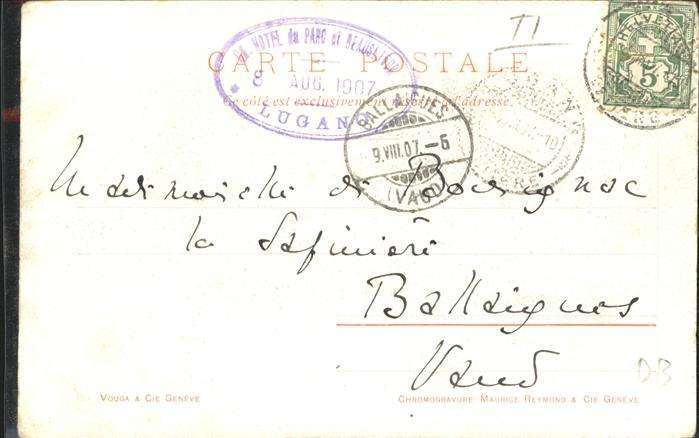 TI
HOTEL du PARC et BEAUSEJOUR
CARTE POSTALE
8 AUG. 1907
Ce côté est exclusivement réservé à l'adresse.
LUGANO
HELVETIA
5
BALLAIGUES
9.VIII.07.-6
(VAUD)
Mademoiselle de
la Sapinière
Ballaigues
Vaud
D-B
VOUGA & CIE GENÈVE
CHROMOGRAVURE MAURICE REYMOND & CIE GENÈVE